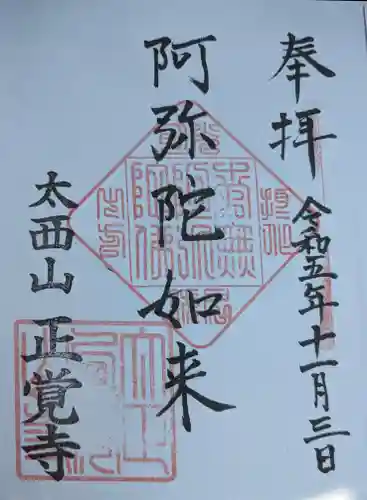 奉拝
令和五年十一月三日
阿弥陀如来
太西山
正覚寺